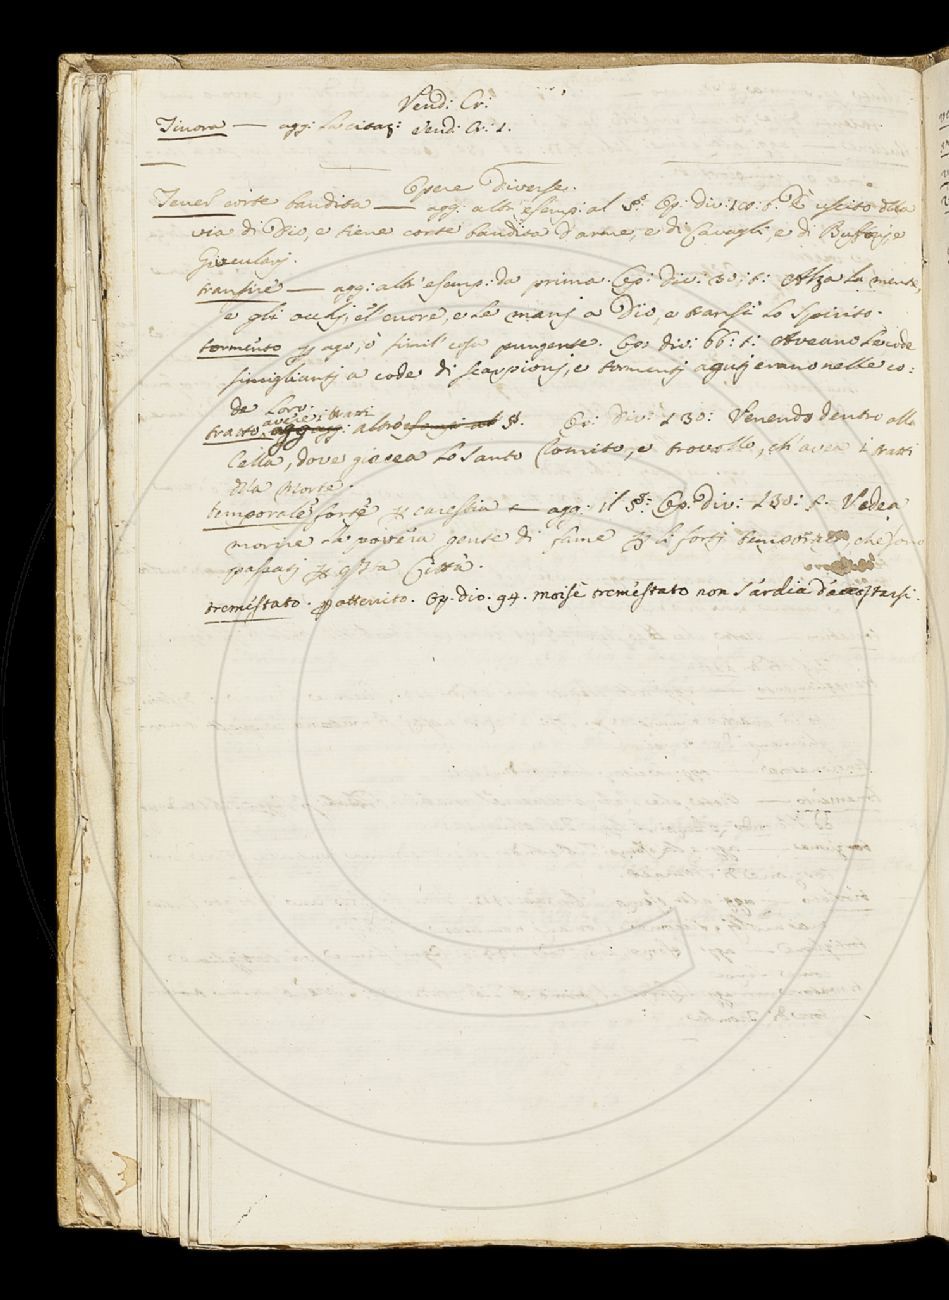 Vend: Cr:
Tinora — agg: la citaz: Vend: Cr: 1.
Opere Diverse.
Tener corte bandita — agg: altr'esemp: al §.° Op: div: 108: 6. È uscito della
via di Dio, e tiene corte bandita d'arme, e di Cavagli, e di Buffonj, e
Gioculari.
transire — agg: altr'esemp: da prima. Op: div: 30: 6: Alza la mente,
e gli occhj, e'l cuore, e le manj a Dio, e transì lo Spirito.
tormento ago, o simil cosa pungente. Op: div: 66: 1: Aveano le code
simigliantj a code di scorpionj, e tormentj aguj erano nelle co:
de loro.
tratto avere i tratti agg: altro esemp: al §. Op: Div: 130: Venendo dentro alla
Cella, dove giacea lo santo Romito, e trovollo, ch'avea i tratti
della Morte.
temporale forte carestia — agg: il §: Op: div: 130: 1. Vedea
morire la povera gente di fame li fortj temporali, che sono
passatj Città.
tremestato. atterrito. Op. div. 94. moisè tremestato non s'ardia d'accostarsi.